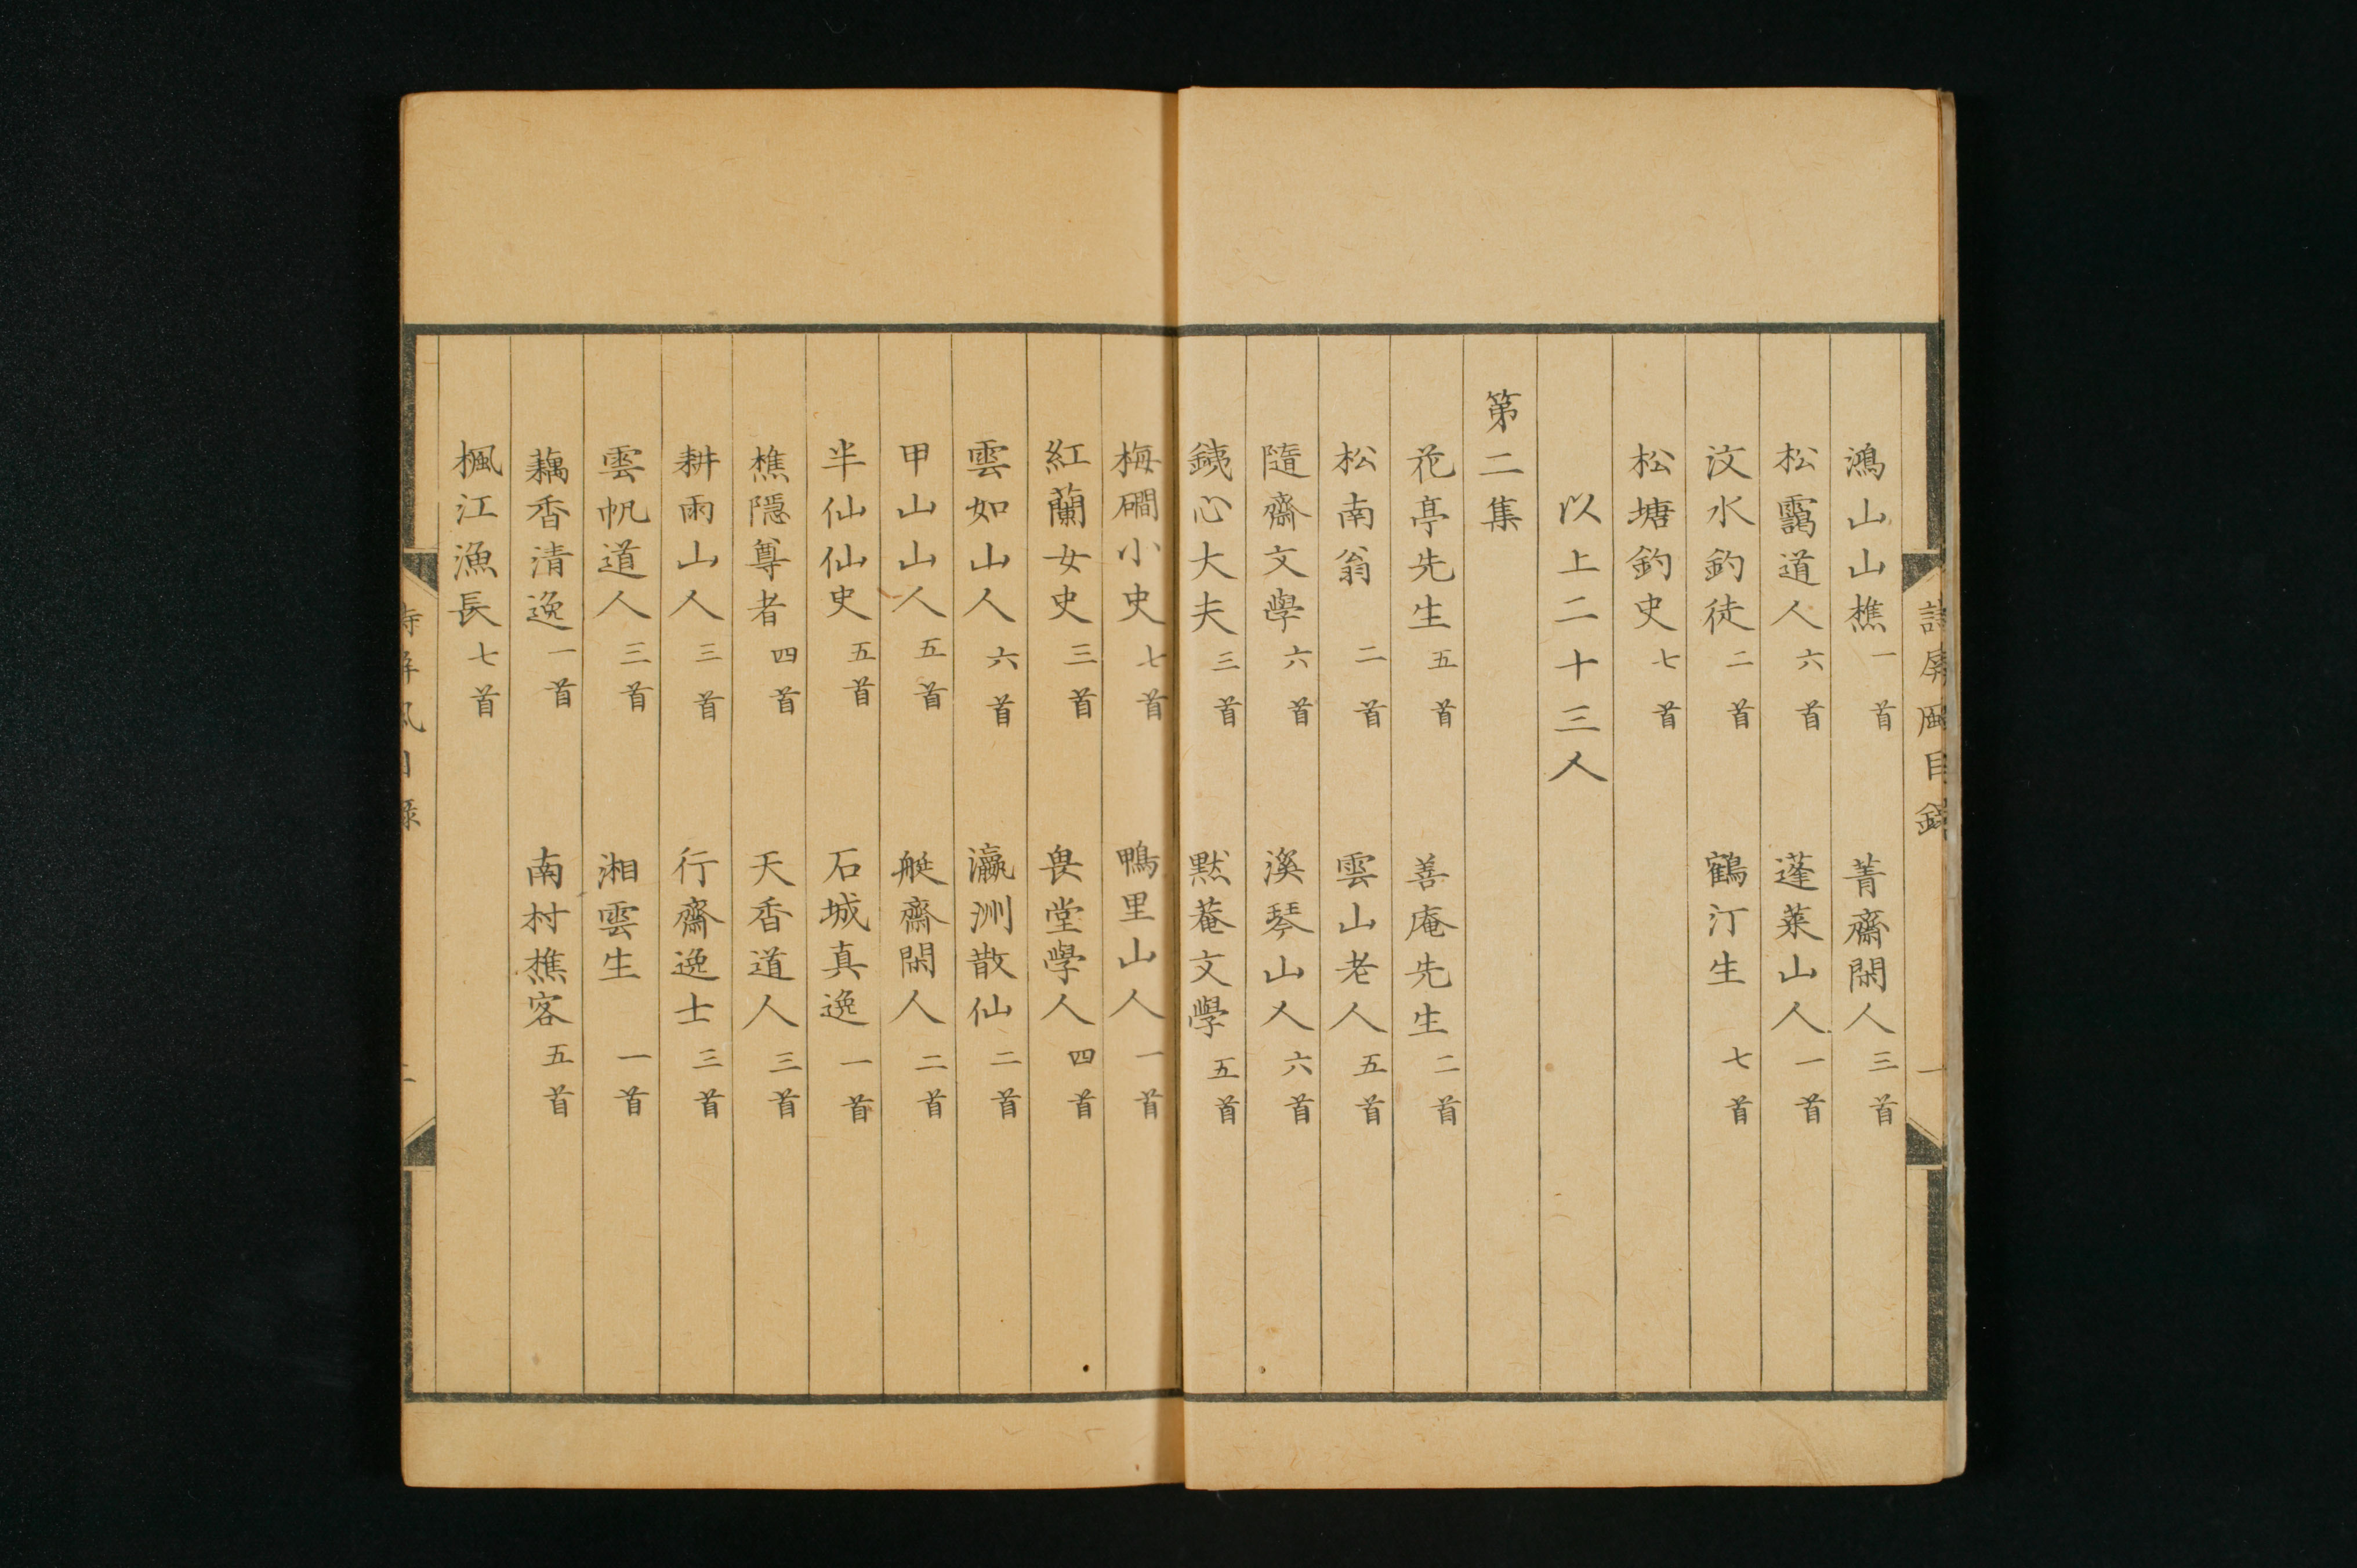 詩屏風目錄 一
鴻山山樵 一首 菁齋閑人 三首
松靄道人 六首 蓬萊山人 一首
汶水釣徒 二首 鶴汀生 七首
松塘釣史 七首
以上二十三人
第二集
花亭先生 五首 善庵先生 二首
松南翁 二首 雲山老人 五首
隨齋文學 六首 溪琴山人 六首
銕心大夫 三首 默菴文學 五首
梅磵小史 七首 鴨里山人 一首
紅蘭女史 三首 畏堂學人 四首
雲如山人 六首 瀛洲散仙 二首
甲山山人 五首 艇齋閑人 二首
半仙仙史 五首 石城真逸 一首
樵隱尊者 四首 天香道人 三首
耕雨山人 三首 行齋逸士 三首
雲帆道人 三首 湘雲生 一首
藕香清逸 一首 南村樵客 五首
楓江漁長 七首